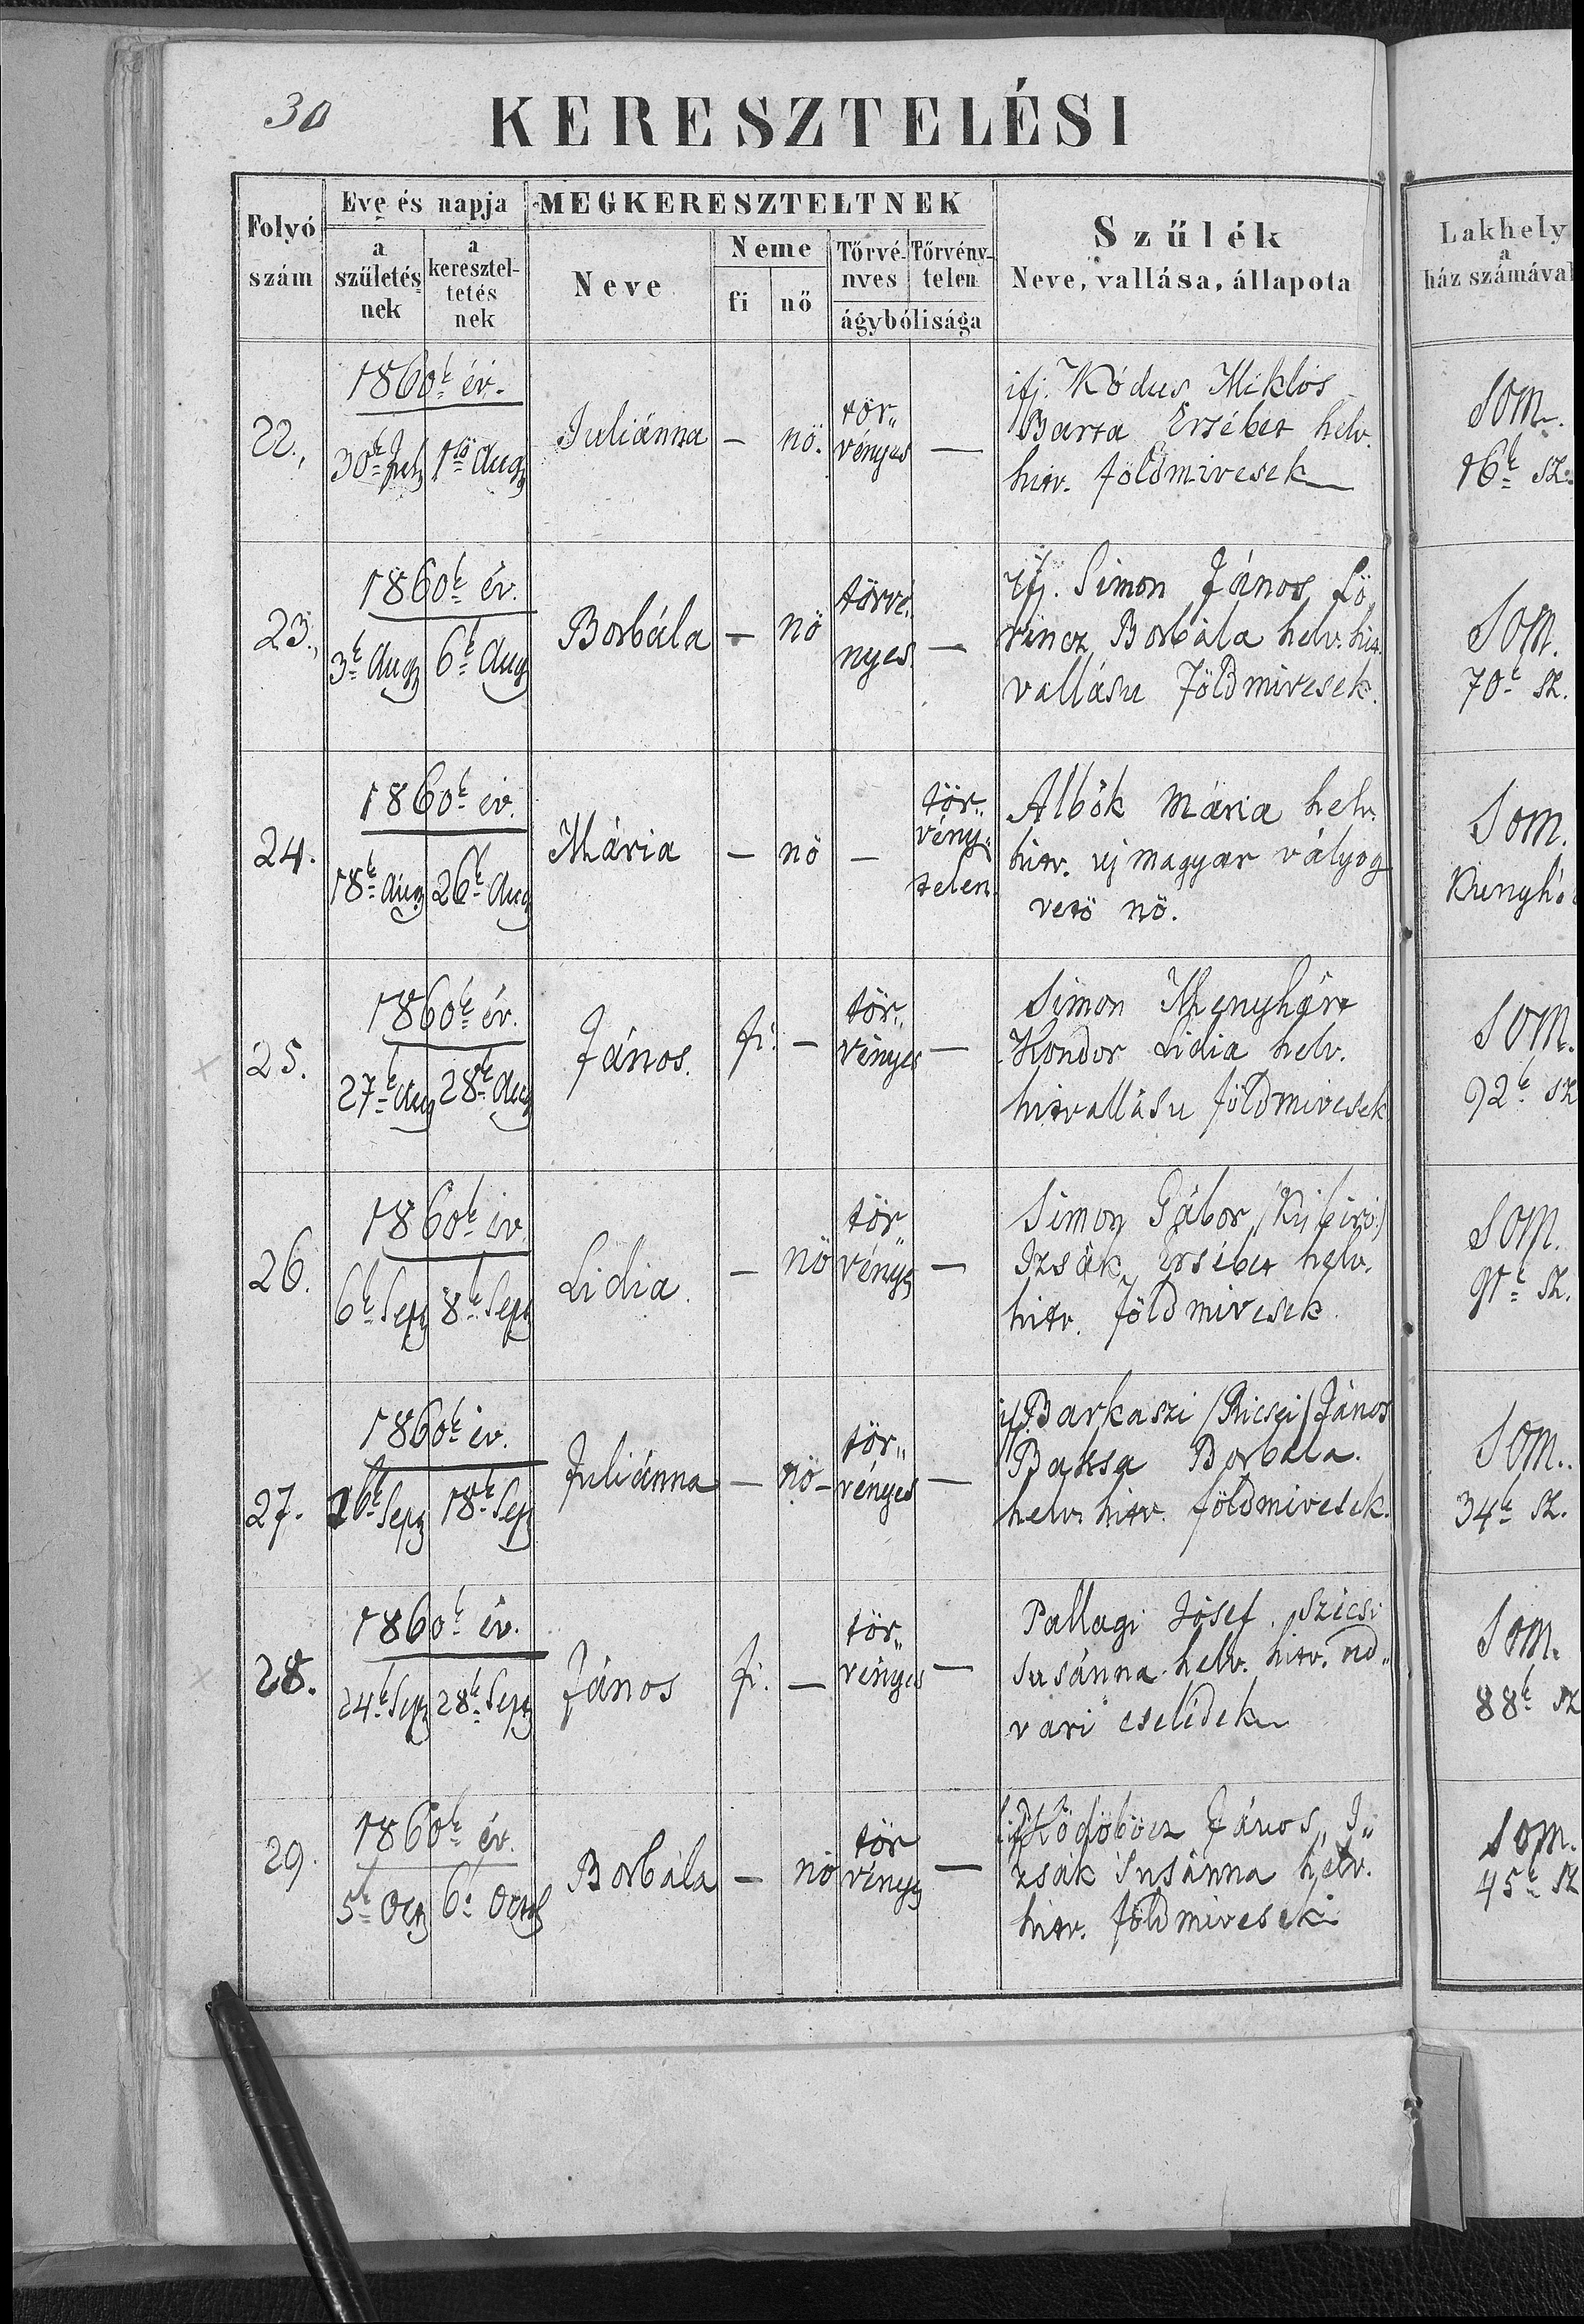 30
KERESZTELÉSI
Folyó szám
Eve és napja
a születés nek
a keresztel- tetés nek
MEGKERESZTELTNEK
Neve
Neme
fi
nő
Törvé- nyes
Törvény- telen
ágybólisága
Szülék
Neve, vallása, állapota
Lakhely
a
ház számával
1860k év.
22.,
30k Jul
1ső Aug
Juliánna
—
nö.
tör„
vényes
—
ifj. Kódus Miklós
Barta Ersébet helv.
hitv. földmivesek
Som.
16k sz.
1860k év.
23.,
3k Aug
6k Aug
Borbála
—
nö
törvé„
nyes
—
Ifj. Simon János, Lö„
rincz Borbála helv. hit.
vallásu földmivesek.
Som.
70k sz.
1860k év.
24.
18k Aug
26k Aug
Mária
—
nö
—
tör„
vény„
telen.
Albók Mária helv.
hitv. uj magyar vályog
vető nö.
Som.
1860k év.
25.
27k Aug
28k Aug
János.
fi.
—
tör„
vényes
—
Simon Menyhárt
Kondor Lidia helv.
hitvallásu földmivesek
Som.
92k sz
1860k év.
26.
6k Sept
8k Sept
Lidia.
—
nö
tör„
vényes
—
Simon Gábor,
Izsák Ersébet helv.
hitv. földmivesek.
Som.
91k sz.
1860k év.
27.
16k Sept
18k Sept
Juliánna
—
nö
—
tör„
vényes
—
ifj Barkaszi /Ricsei/ János
Baksa Borbála.
helv. hitv. földmivesek.
Som.
34k sz.
1860k év.
28.
24k Sept
28k Sept
János
fi.
—
tör„
vényes
—
Pallagi Jósef, Szicsi
Susánna helv. hitv. ud„
vari cselédek
Som.
88k sz
1860k év.
29.
5k Oct
6k Octob
Borbála
—
nö
tör
vényes
—
ifj Ködöböcz János, I„
zsák Susánna helv.
hitv. földmivesek
Som.
45k sz